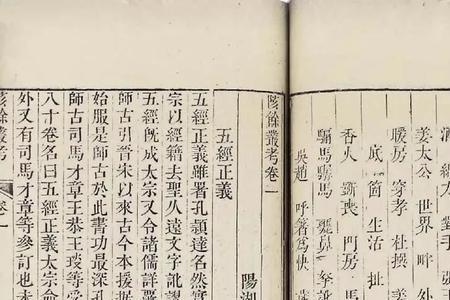 姜太公 世界 畔 外
煖房 穿孝 杜撰
底 箇 生活 扯
香火 門房
騙馬
吳趙 呼箸為快
陔餘叢考卷一
陽湖
五經正義
五經正義雖署孔穎達名然實
宗以經籍去聖久遠文字訛謬
五經旣成太宗又令諸儒詳
師古引晉宋以來古今本援據
始服是師古於此書功最深
師古司馬才章王恭王琰等受
八十卷名曰五經正義太宗命
外又有司馬才章等參訂也永
陔餘叢考 卷一